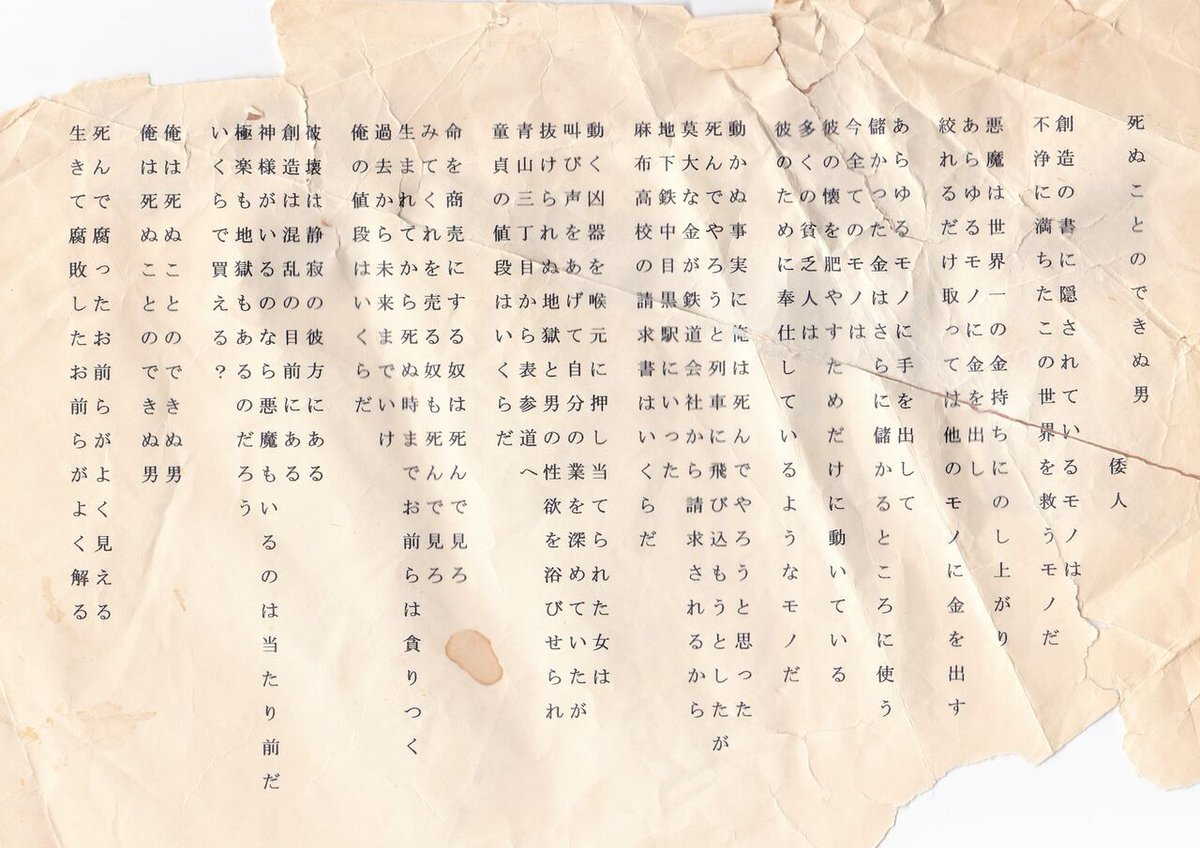 死ぬことのできぬ男
倭人
創造の書に隠されているモノは
不浄に満ちたこの世界を救うモノだ
悪魔は世界一の金持ちにのし上がり
あらゆるモノに金を出し
絞れるだけ取っては他のモノに金を出す
あらゆるモノに手を出して
儲かった金はさらに儲かるところに使う
今全てのモノは
彼の懐を肥やすためだけに動いている
多くの貧乏人は
彼のために奉仕しているようなモノだ
動かぬ事実に俺は死んでやろうと思った
死んでやろうと列車に飛び込もうとしたが
莫大な金が鉄道会社から請求されるから
地下鉄中目黒駅にいった
麻布高校の請求書はいくらだ
動く凶器を喉元に押し当てられた女は
叫び声をあげて自分の業を深めていたが
抜けられぬ地獄と男の性欲を浴びせられ
青山三丁目から表参道へ
童貞の値段はいくらだ
命を商売にする奴は死んで見ろ
みてくれを売る奴も死んで見ろ
生まれてから死ぬ時までお前らは貪りつく
過去から未来までいけ
俺の値段はいくらだ
彼壊は静寂の彼方にある
創造は混乱の目前にある
神様がいるのなら悪魔もいるのは当たり前だ
極楽も地獄もあるのだろう
いくらで買える?
俺は死ぬことのできぬ男
俺は死ぬことのできぬ男
死んで腐ったお前らがよく見える
生きて腐敗したお前らがよく解る